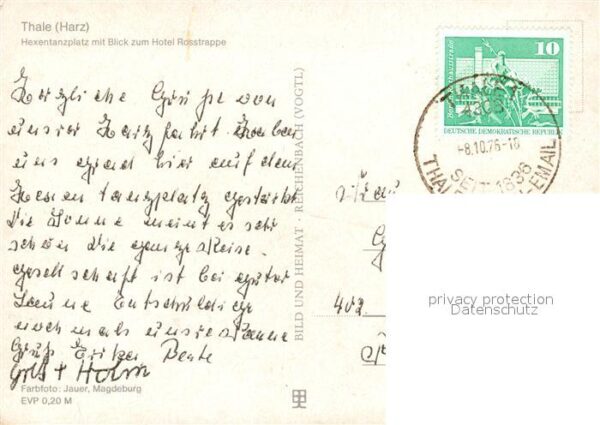 Thale (Harz)
Hexentanzplatz mit Blick zum Hotel Rosstrappe
Herzliche Grüße von
unsrer Harzfahrt haben
uns grad hier auf dem
Hexentanzplatz gestärkt
Die Sonne meint es sehr
schön Die ganze Reise
gesellschaft ist bei guter
Laune Entschuldige
nochmals unsre Panne
Gruß Erika Beate
+ Holm
Farbfoto: Jauer, Magdeburg
EVP 0,20 M
BILD UND HEIMAT · REICHENBACH (VOGTL)
10
DEUTSCHE DEMOKRATISCHE REPUBLIK
THALE
4308
-8.10.76-18
SEIT 1836
EMAIL
402
privacy protection
Datenschutz